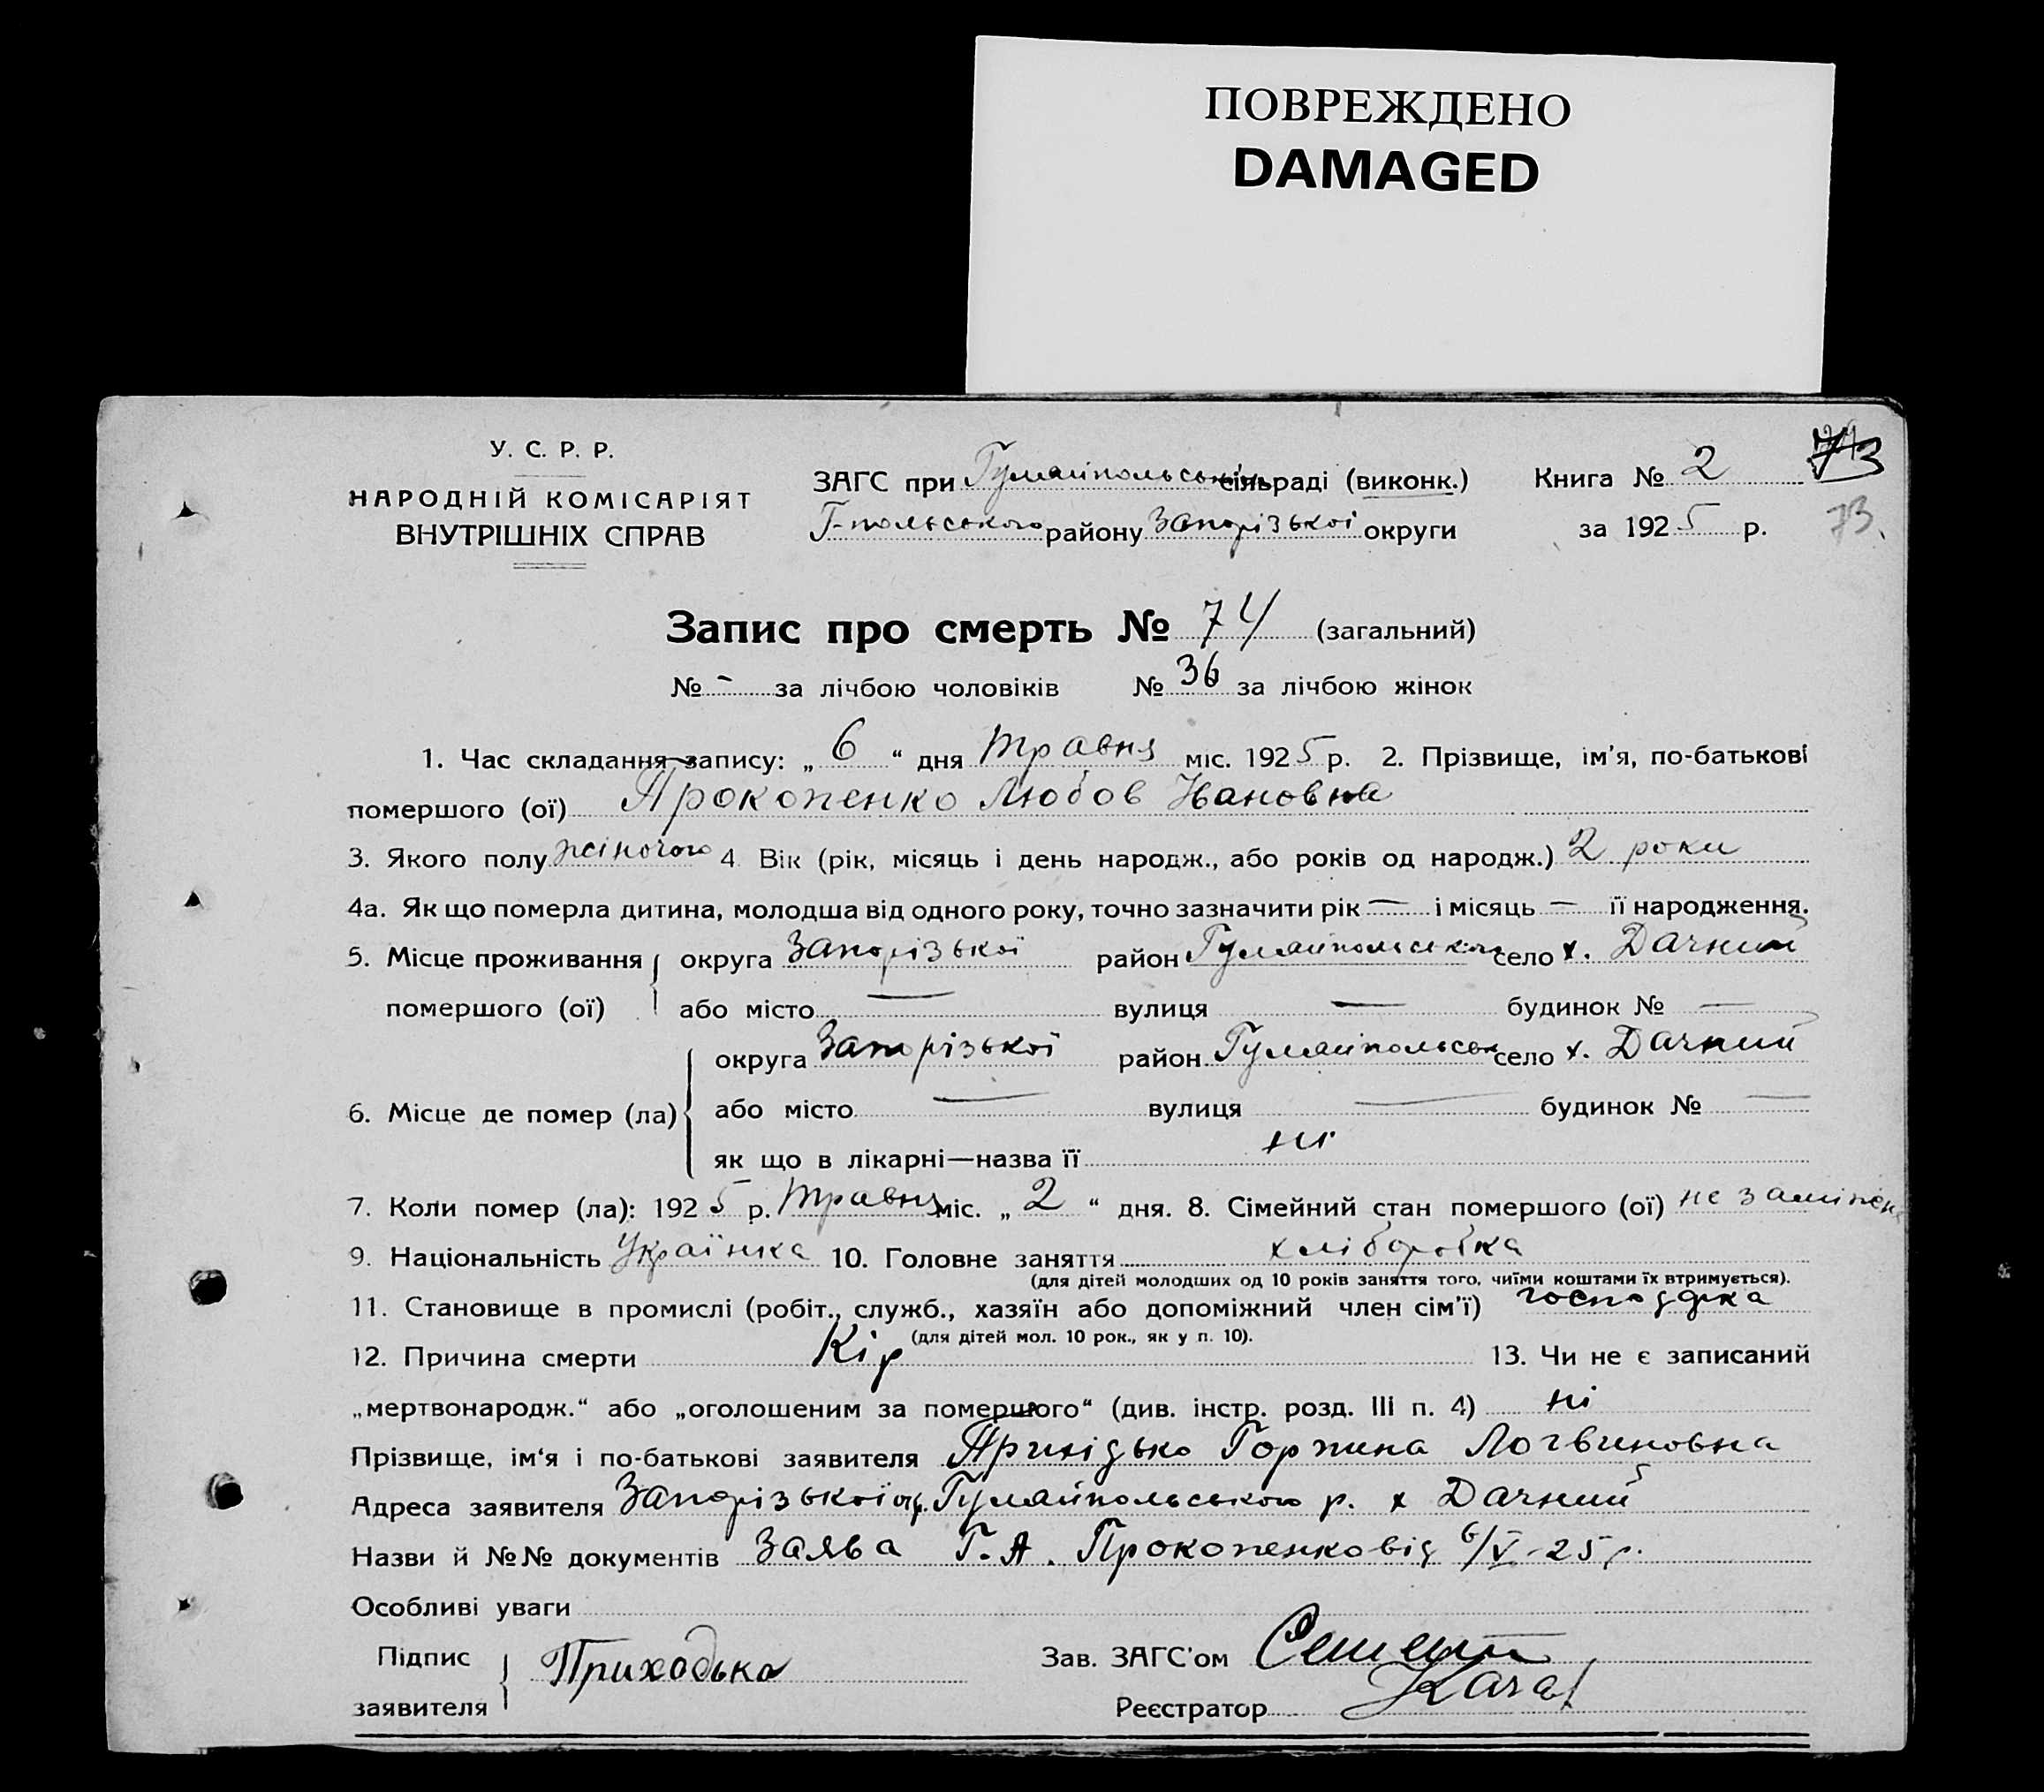 ПОВРЕЖДЕНО
DAMAGED
У. С. Р. Р.
НАРОДНІЙ КОМІСАРІЯТ
ВНУТРІШНІХ СПРАВ
ЗАГС при Гуляйпольськім сільраді (виконк.)
Г-польського району Запорізької округи
Книга № 2
за 1925 р.
73
73.
Запис про смерть № 74 (загальний)
№ - за лічбою чоловіків № 36 за лічбою жінок
1. Час складання запису: „ 6 “ дня травня міс. 1925 р. 2. Прізвище, ім’я, по-батькові
помершого (ої) Прокопенко Любов Івановна
3. Якого полу жіночого 4. Вік (рік, місяць і день народж., або років од народж.) 2 роки
4а. Як що померла дитина, молодша від одного року, точно зазначити рік — і місяць — її народження.
5. Місце проживання округа Запорізької район Гуляйпольського село х. Дачний
помершого (ої) або місто — вулиця — будинок № —
округа Запорізької район Гуляйпольськ село х. Дачний
6. Місце де помер (ла) або місто — вулиця — будинок № —
як що в лікарні—назва її ні
7. Коли помер (ла): 1925 р. травня міс. „ 2 “ дня. 8. Сімейний стан помершого (ої) не заміжня
9. Національність Українка 10. Головне заняття хліборобка
(для дітей молодших од 10 років заняття того, чиїми коштами їх втримується).
11. Становище в промислі (робіт., служб., хазяїн або допоміжний член сім’ї) господарка
(для дітей мол. 10 рок., як у п. 10).
12. Причина смерти Кір 13. Чи не є записаний
„мертвонародж.“ або „оголошеним за помершого“ (див. інстр. розд. III п. 4) ні
Прізвище, ім‘я і по-батькові заявителя Горпина Логвиновна
Адреса заявителя Запорізької окр. Гуляйпольського р. х Дачний
Назви й №№ документів Заява Г. А. Прокопенко від 6/V-25 р.
Особливі уваги
Підпис
заявителя
Приходько
Зав. ЗАГС’ом
Реєстратор